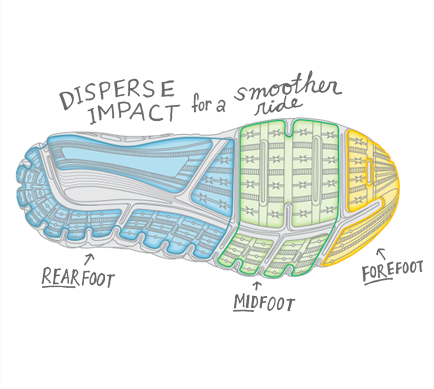 DISPERSE
IMPACT for a smoother
ride
REARFOOT
MIDFOOT
FOREFOOT